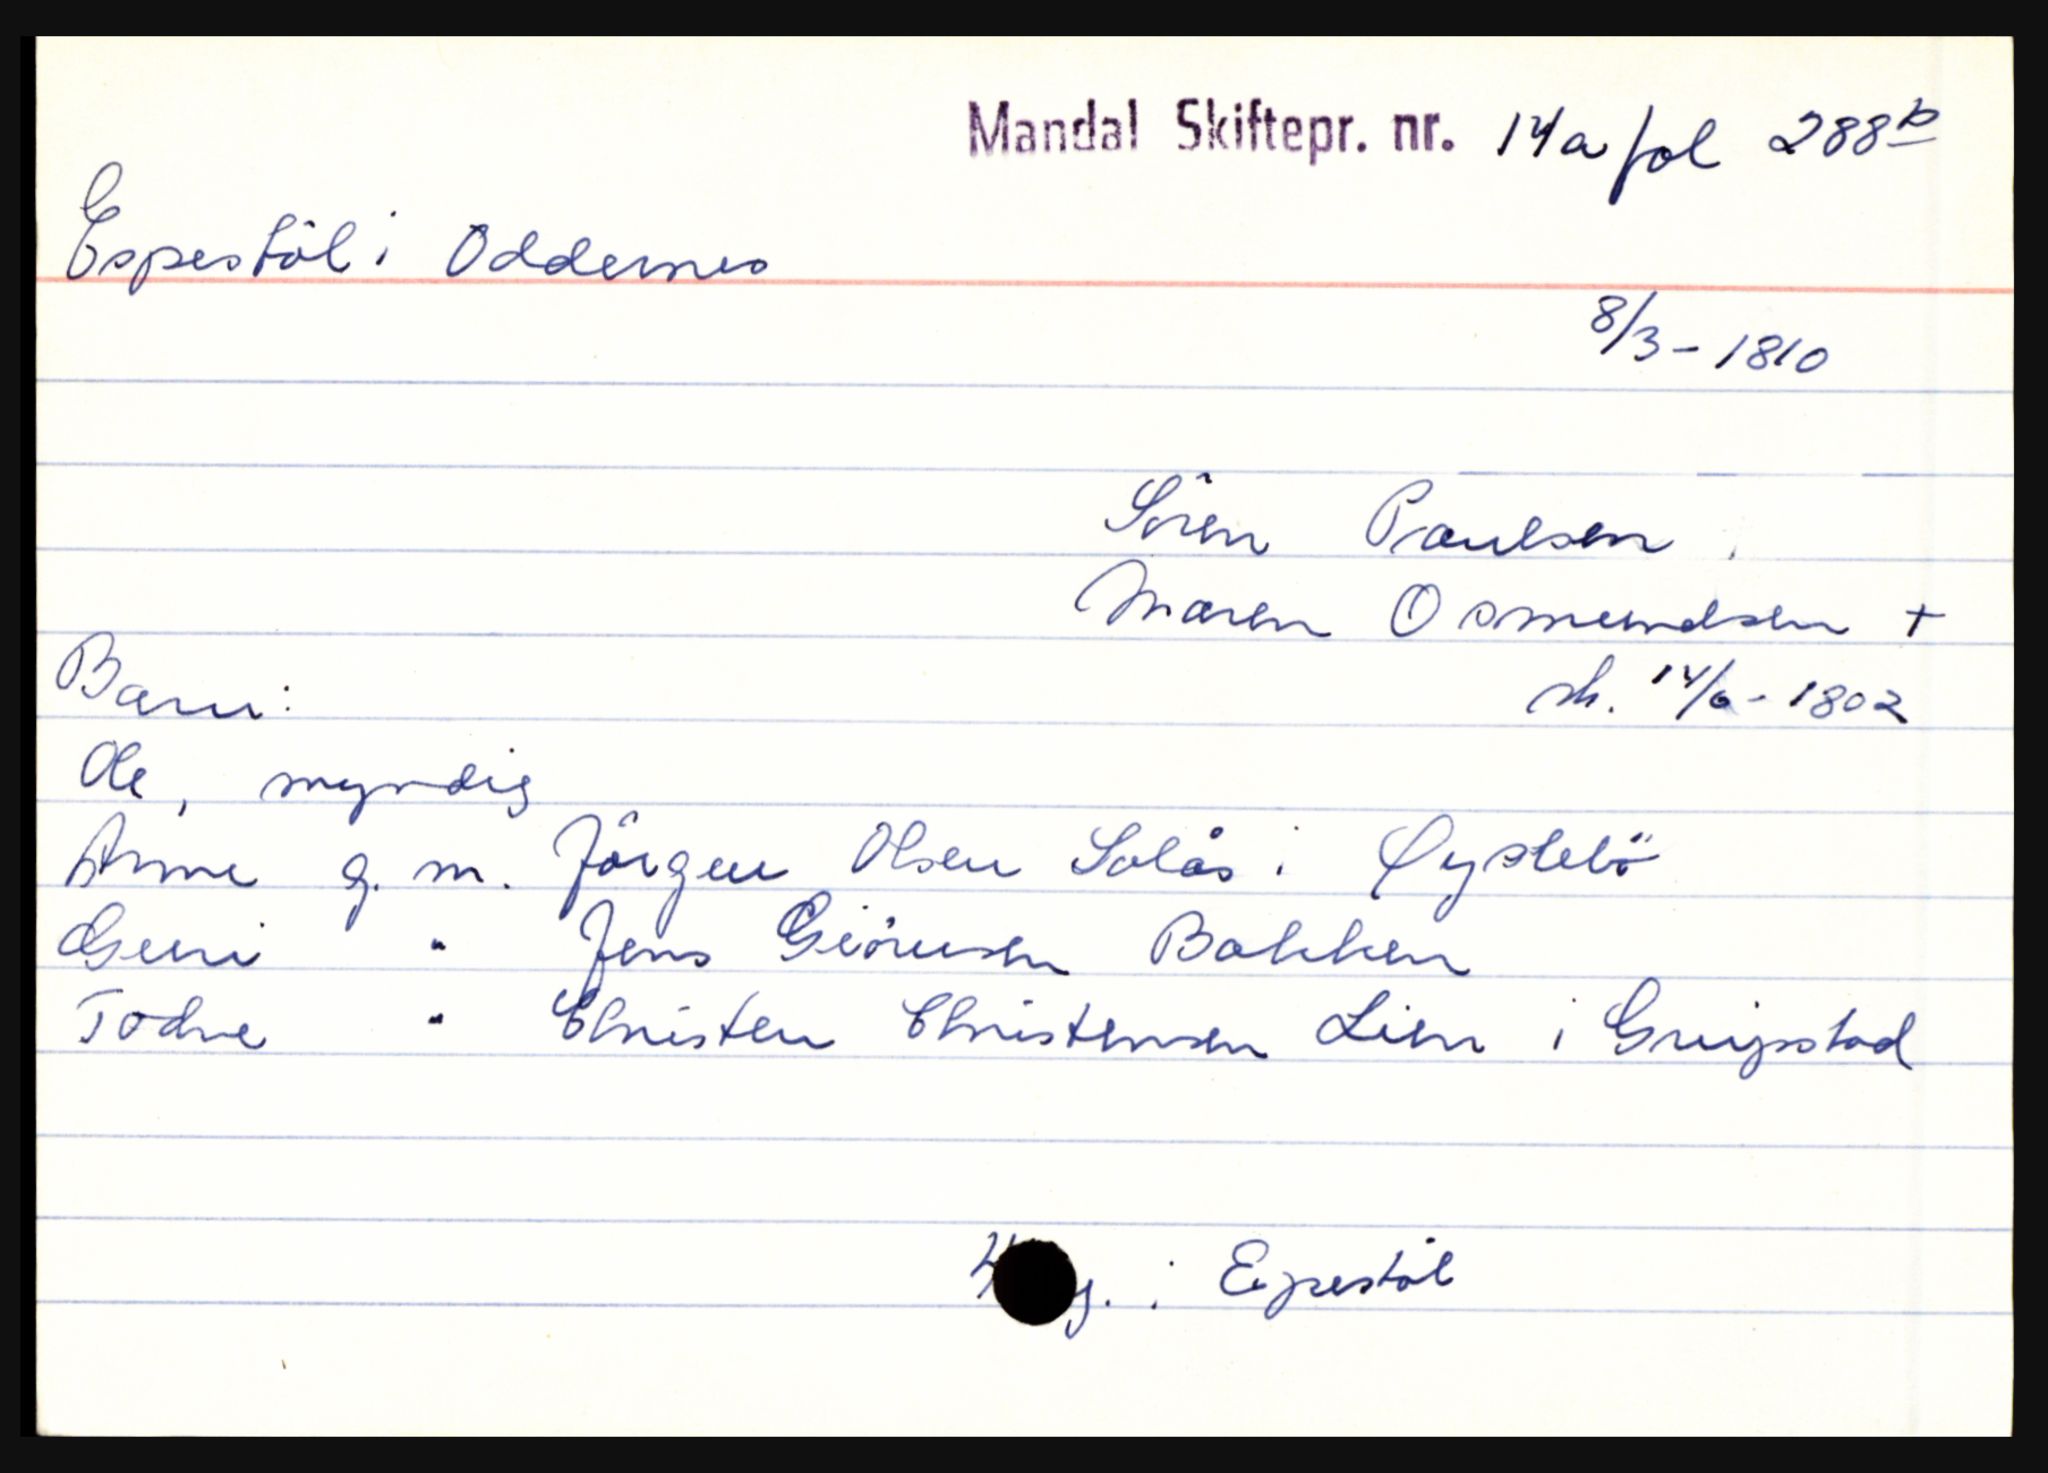 Mandal Skiftepr. nr. 14a fol 288b
Espestöl i Oddernes
8/3 - 1810
Sören Paulsen
Maren Osmundsen +
sk. 14/6 - 1802
Barn:
Ole, myndig
Anne g. m. Jörgen Olsen Solås i Øyslebö
Guri " Jens Giörusen Bakken
Todne " Christen Christensen Lien i Greipstad
i Espestöl